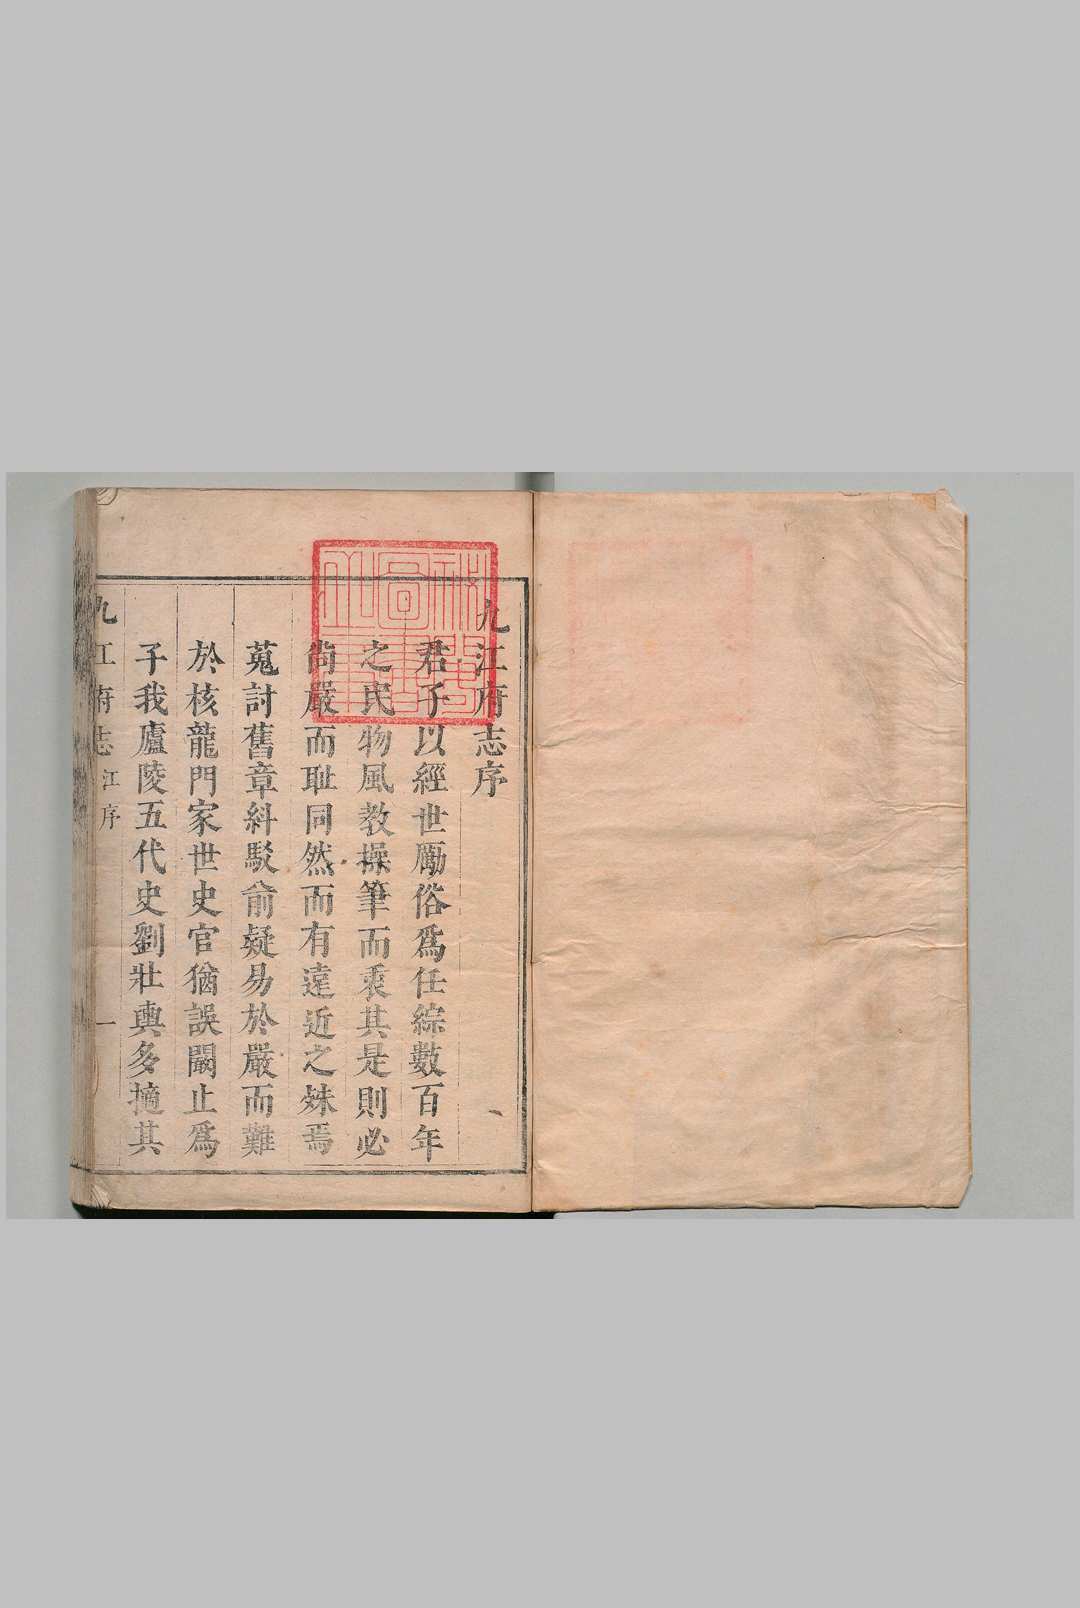 九江府志序
君子以經世勵俗爲任綜數百年
之民物風教操筆而秉其是則必
尚嚴而恥同然而有遠近之殊焉
蒐討舊章糾駁前疑易於嚴而難
於核龍門家世史官猶誤闞止爲
子我廬陵五代史劉壯輿多摘其
九江府志 江序 一